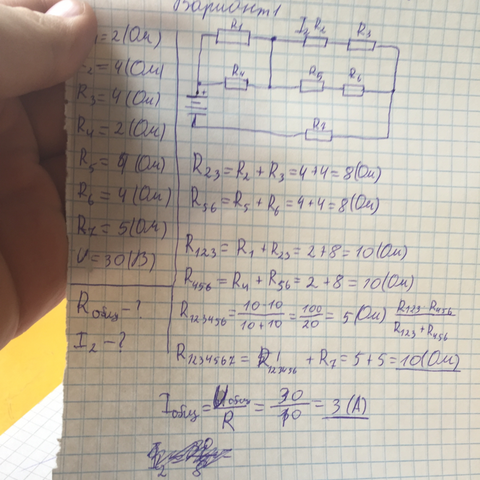 Вариант 1
R₁ I₂ R₂ R₃
R₄ R₅ R₆
R₇
= 2 (Ом)
= 4 (Ом)
R₃ = 4 (Ом)
R₄ = 2 (Ом)
R₅ = 4 (Ом)
R₆ = 4 (Ом)
R₇ = 5 (Ом)
U = 30 (В)
Rобщ - ?
I₂ - ?
R₂₃ = R₂ + R₃ = 4 + 4 = 8 (Ом)
R₅₆ = R₅ + R₆ = 4 + 4 = 8 (Ом)
R₁₂₃ = R₁ + R₂₃ = 2 + 8 = 10 (Ом)
R₄₅₆ = R₄ + R₅₆ = 2 + 8 = 10 (Ом)
R₁₂₃₄₅₆ = 10·10 / 10+10 = 100 / 20 = 5 (Ом) R₁₂₃·R₄₅₆ / R₁₂₃+R₄₅₆
R₁₂₃₄₅₆₇ = R₁₂₃₄₅₆ + R₇ = 5 + 5 = 10 (Ом)
Iобщ = Uобщ / R = 30 / 10 = 3 (А)